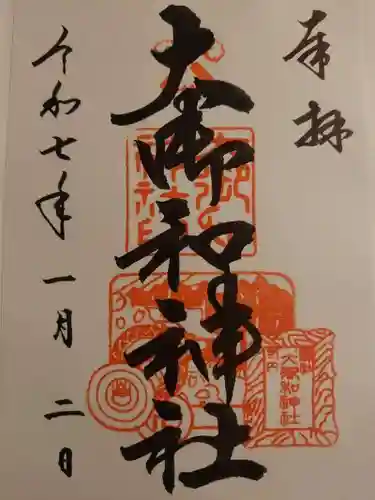 奉拝
大御和神社
令和七年一月二日
大御和神社